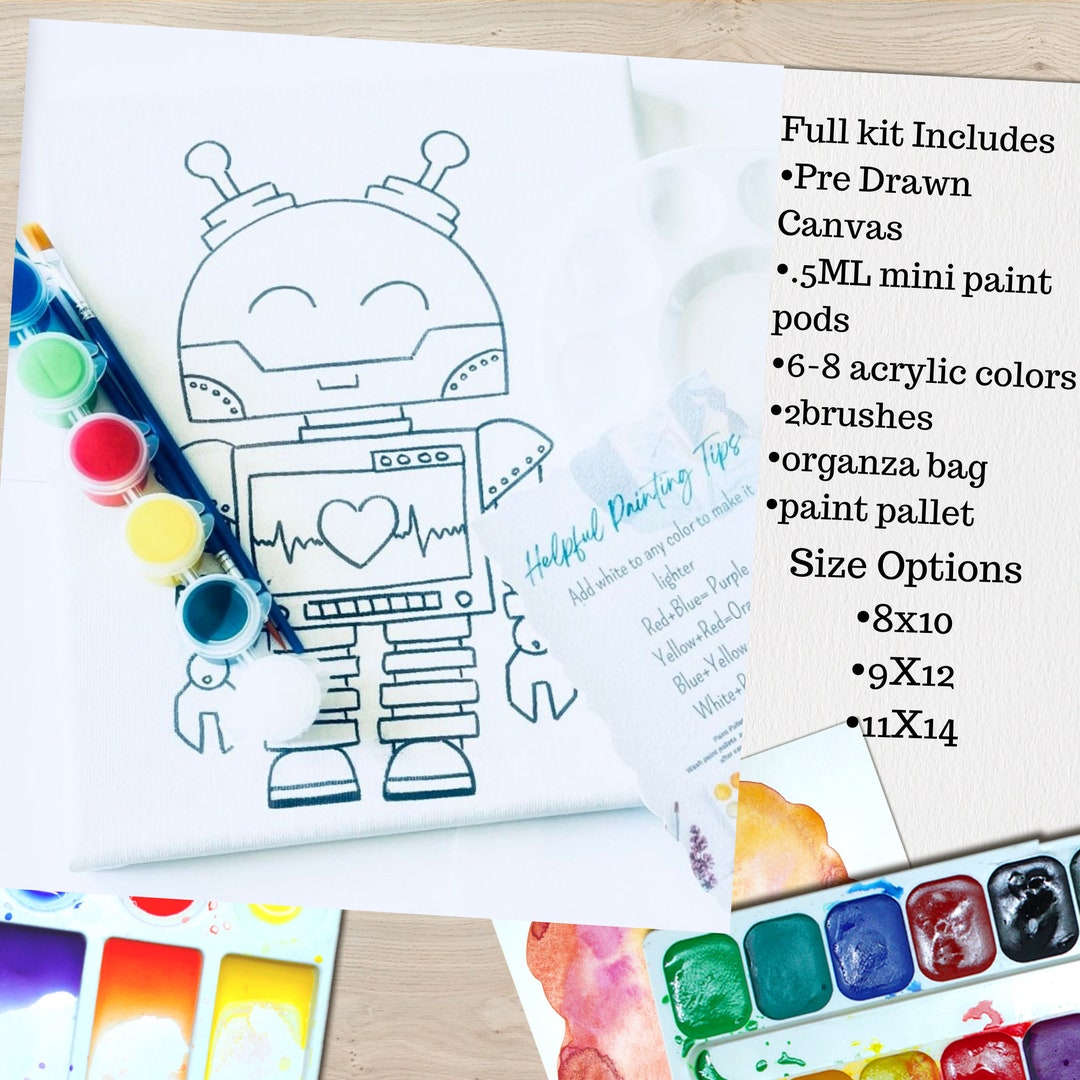 Full kit Includes
•Pre Drawn
Canvas
•.5ML mini paint
pods
•6-8 acrylic colors
•2brushes
•organza bag
•paint pallet
Size Options
•8x10
•9X12
•11X14
Helpful Painting Tips
Add white to any color to make it
lighter
Red+Blue= Purple
Yellow+Red=Ora
Blue+Yellow
White+
Wash paint pallets